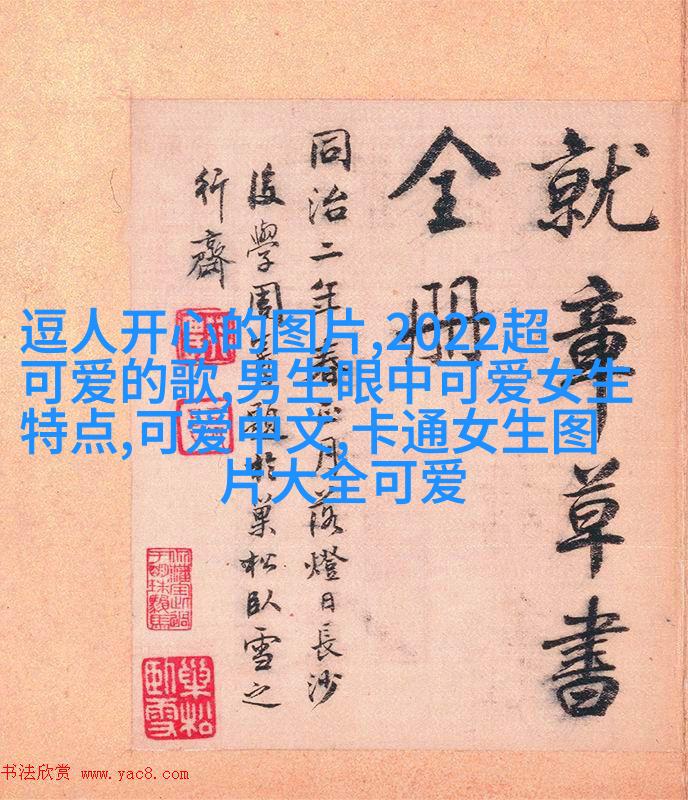 就章草書
全册
同治二年春正月落燈日長沙
後學周題於巢松臥雪之
行齋
逗人开心的图片,2022超
可爱的歌,男生眼中可爱女生
特点,可爱中文,卡通女生图
片大全可爱
巢松
臥雪
书法欣赏 www.yac8.com